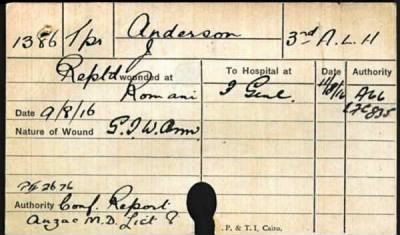 1386 Tpr Anderson J 3rd A.L.H
Reptd wounded at Romani
To Hospital at Date Authority
1 Genl. A66
Date 9/8/16
Nature of Wound G.S.W. Arm
Authority Conf. Report
Anzac M.D. List 8
P. & T. I., Cairo.